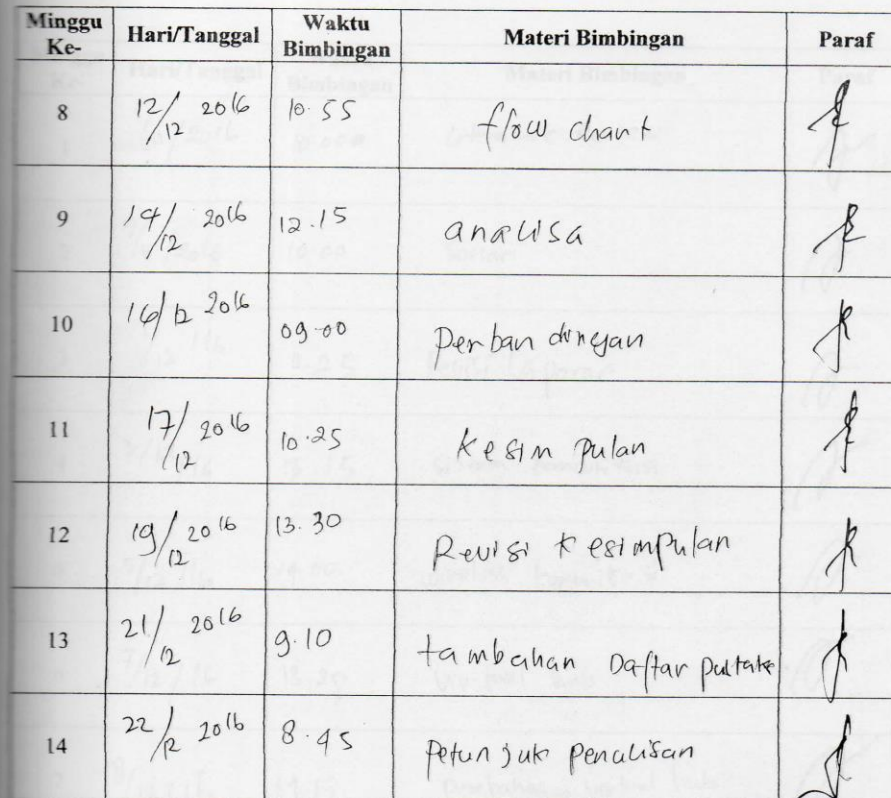 Minggu Ke- Hari/Tanggal Waktu Bimbingan Materi Bimbingan Paraf
8 12/12 2016 10.55 flow chart
9 14/12 2016 12.15 analisa
10 16/12 2016 09.00 Perbandingan
11 17/12 2016 10.25 Kesimpulan
12 19/12 2016 13.30 Revisi Kesimpulan
13 21/12 2016 9.10 tambahan Daftar pustaka
14 22/12 2016 8.45 Petunjuk penulisan